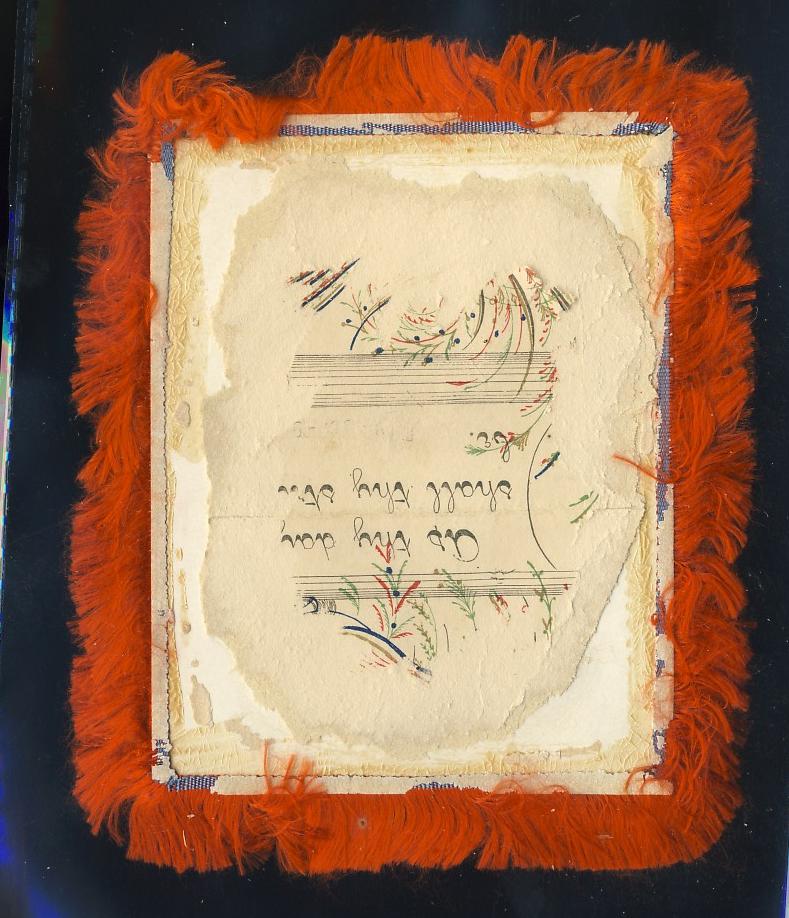 As thy day
shall thy str
be.